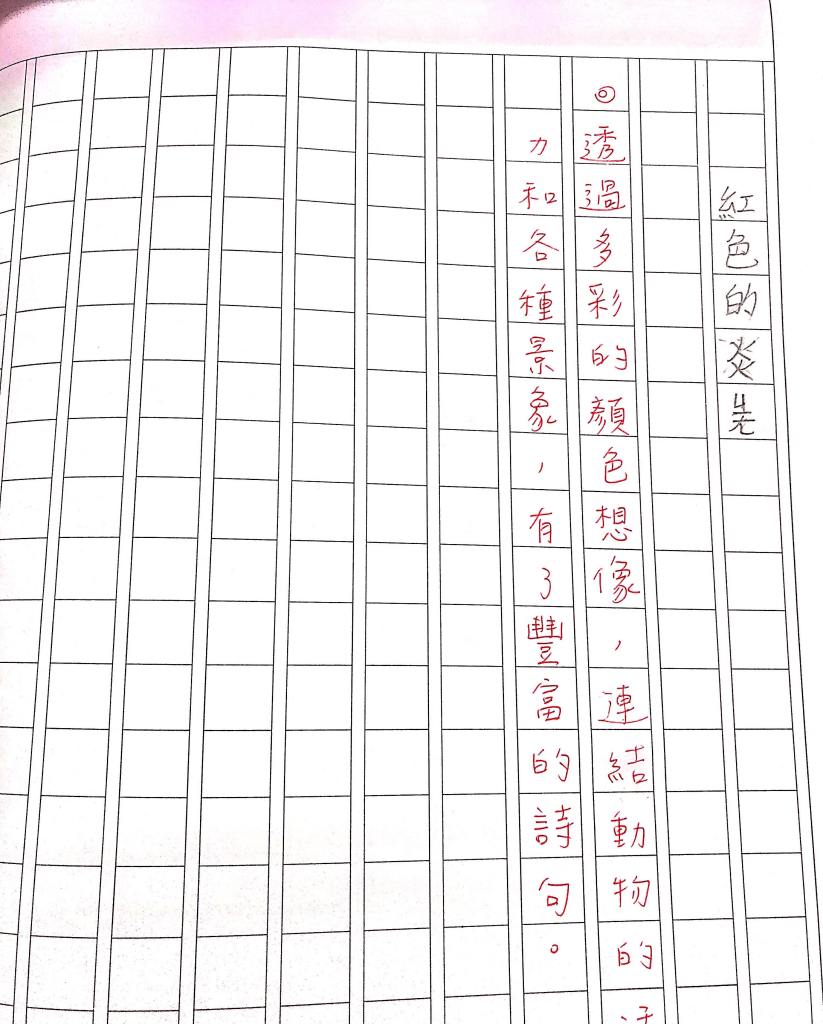 紅色的炎先
◎透過多彩的顏色想像，連結動物的活
力和各種景象，有了豐富的詩句。